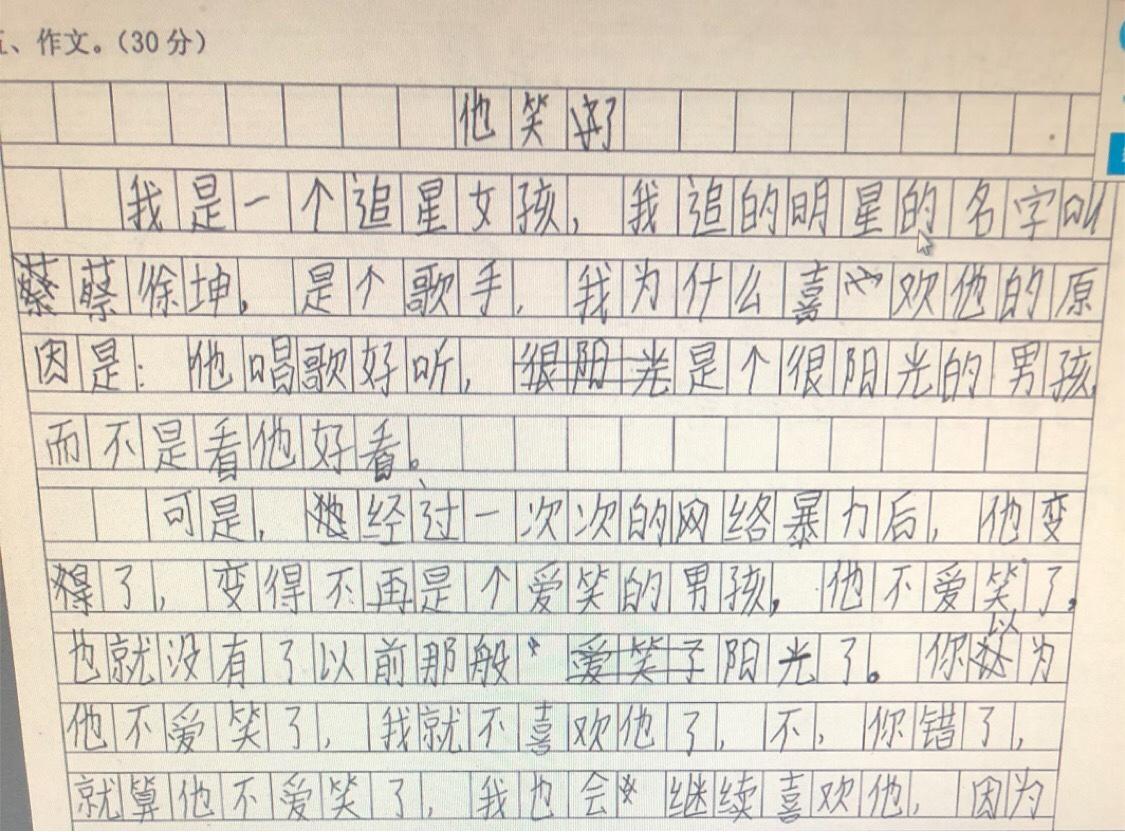 、作文。(30分)
他笑了
我是一个追星女孩，我追的明星的名字叫
蔡徐坤，是个歌手，我为什么喜欢他的原
因是：他唱歌好听，很阳光是个很阳光的男孩，
而不是看他好看。
可是，他经过一次次的网络暴力后，他变
得了，变得不再是个爱笑的男孩，他不爱笑了，
也就没有了以前那般爱笑了阳光了。你以为
他不爱笑了，我就不喜欢他了，不，你错了，
就算他不爱笑了，我也会继续喜欢他，因为